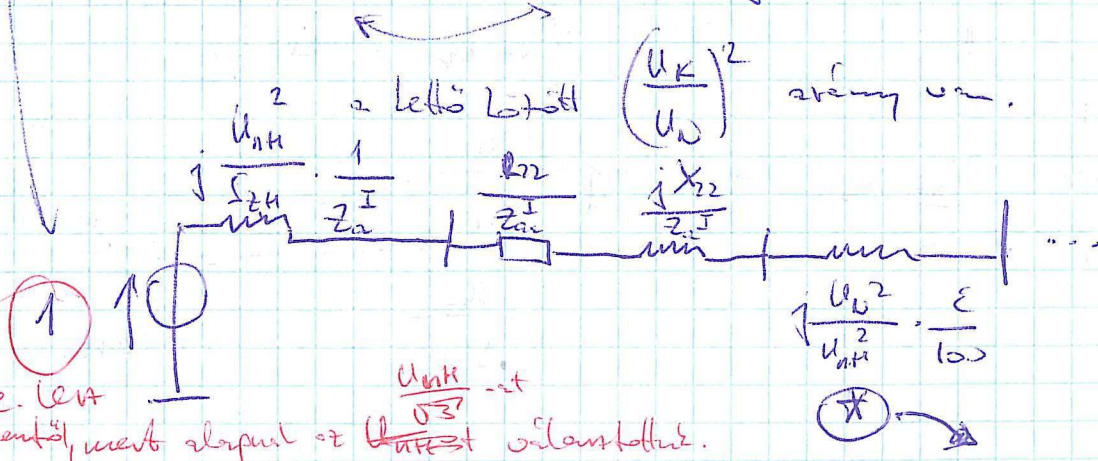 a kettő között (U_K / U_N)² arány van.
j U_nH² / S_ZH · 1 / Z_a^I
R_22 / Z_a^I
j X_22 / Z_a^I
...
1
j U_N² / U_nH² · ε / 100
*
e. lett
mert alapul az U_nH / √3 -at választottuk.